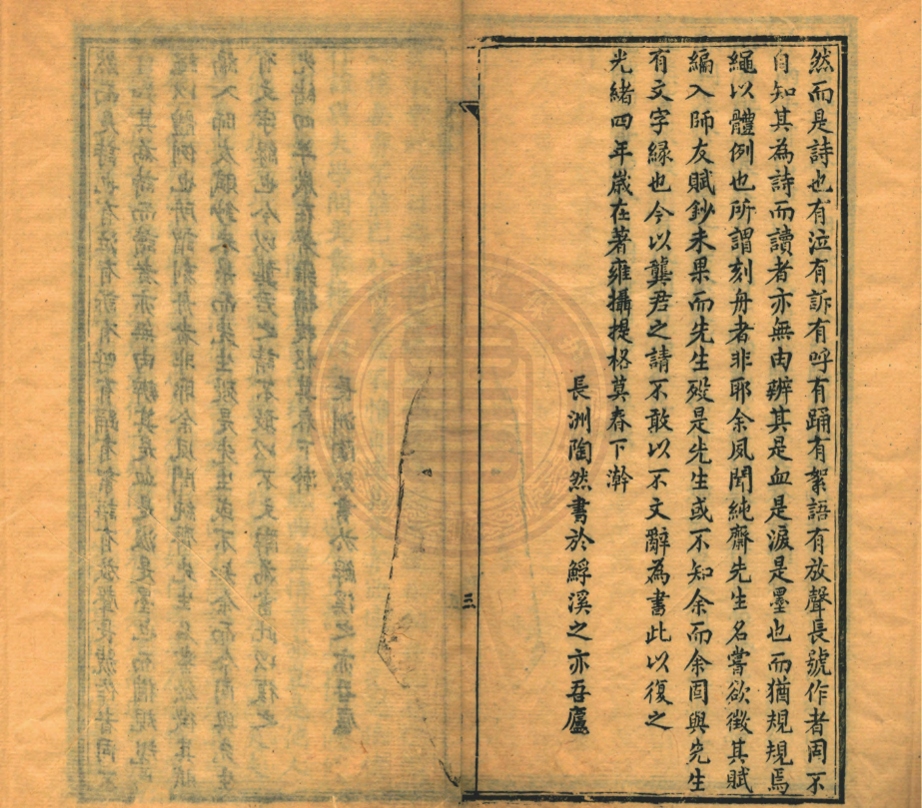 然而是詩也有泣有訴有呼有踊有絮語有放聲長號作者罔不
自知其為詩而讀者亦無由辨其是血是淚是墨也而猶規規焉
繩以體例也所謂刻舟者非耶余夙聞純齋先生名嘗欲徵其賦
編入師友賦鈔未果而先生歿是先生或不知余而余固與先生
有文字緣也今以龔君之請不敢以不文辭為書此以復之
光緒四年歲在著雍攝提格莫春下澣
長洲陶然書於䱐溪之亦吾廬
三